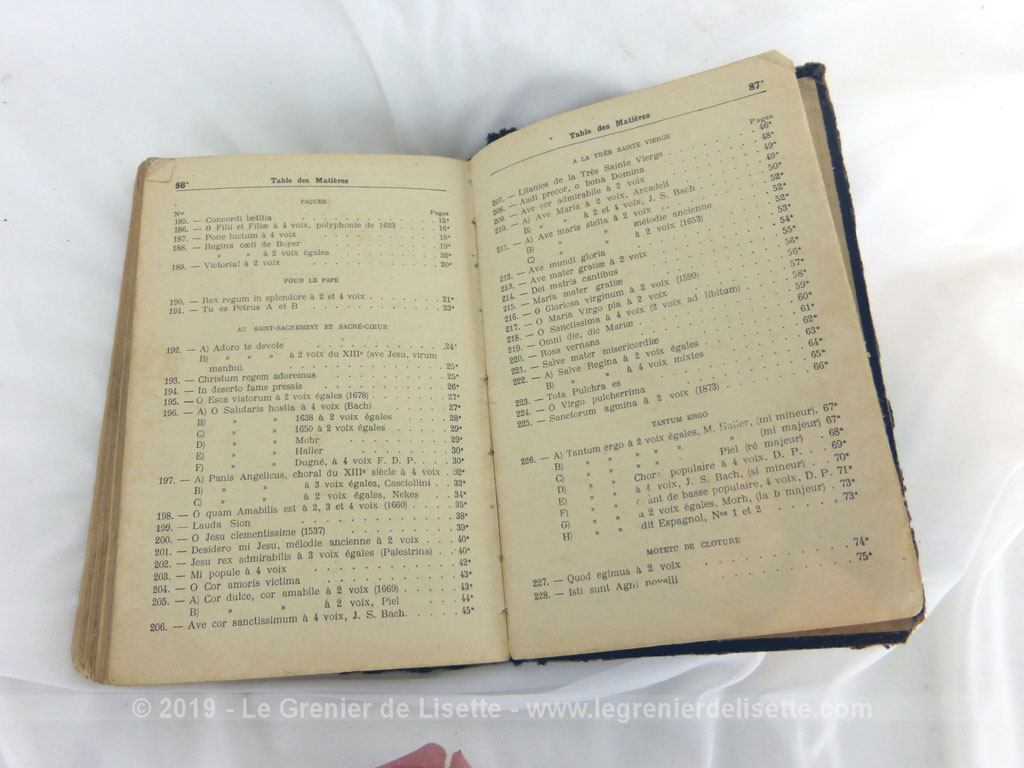 86*
Table des Matières
PAQUES
Nos Pages
185. — Concordi lætitia . . . 15*
186. — O Filii et Filiæ à 4 voix, polyphonie de 1623 . . . 16*
187. — Pone luctum à 4 voix . . . 18*
188. — Regina cœli de Boyer . . . 19*
» » à 2 voix égales . . . 20*
189. — Victoria! à 2 voix . . . 20*
POUR LE PAPE
190. — Rex regum in splendore à 2 et 4 voix . . . 21*
191. — Tu es Petrus A et B . . . 23*
AU SAINT-SACREMENT ET SACRÉ-CŒUR
192. — A) Adoro te devote . . . 24*
B) » » » à 2 voix du XIIIe (ave Jesu, virum
manhu) . . . 25*
193. — Christum regem adoremus . . . 25*
194. — In deserto fame pressis . . . 26*
195. — O Esca viatorum à 2 voix égales (1678) . . . 27*
196. — A) O Salutaris hostia à 4 voix (Bach) . . . 27*
B) » » 1638 à 2 voix égales . . . 28*
C) » » 1650 à 2 voix égales . . . 29*
D) » » Mohr . . . 29*
E) » » Haller . . . 30*
F) » » Dugné, à 4 voix F. D. P. . . . 30*
197. — A) Panis Angelicus, choral du XIIIe siècle à 4 voix . 32*
B) » » à 3 voix égales, Casciollini . . 33*
C) » » à 2 voix égales, Nekes . . . 34*
198. — O quam Amabilis est à 2, 3 et 4 voix (1660) . . . 35*
199. — Lauda Sion . . . 38*
200. — O Jesu clementissime (1537) . . . 39*
201. — Desidero mi Jesu, mélodie ancienne à 2 voix . . . 40*
202. — Jesu rex admirabilis à 3 voix égales (Palestrina) . . . 40*
203. — Mi popule à 4 voix . . . 42*
204. — O Cor amoris victima . . . 43*
205. — A) Cor dulce, cor amabile à 2 voix (1669) . . . 43*
B) » » à 2 voix, Piel . . . 44*
206. — Ave cor sanctissimum à 4 voix, J. S. Bach. . . . 45*
87*
Table des Matières
A LA TRÈS SAINTE VIERGE
Pages
207. — Litanies de la Très Sainte Vierge . . . 46*
208. — Audi precor, o bona Domina . . . 48*
209. — Ave cor admirabile à 2 voix . . . 49*
210. — A) Ave Maria à 2 voix, Arcadelt . . . 49*
B) » » à 2 et 4 voix, J. S. Bach . . . 50*
211. — A) Ave maris stella à 2 voix . . . 52*
B) » » mélodie ancienne . . . 52*
C) » » à 2 voix (1653) . . . 52*
212. — Ave mundi gloria . . . 53*
213. — Ave mater gratiæ à 2 voix . . . 54*
214. — Dei matris cantibus . . . 55*
215. — Maria mater gratiæ . . . 56*
216. — O Gloriosa virginum à 2 voix (1599) . . . 56*
217. — O Maria Virgo pia à 2 voix . . . 57*
218. — O Sanctissima à 4 voix (2 voix ad libitum) . . . 58*
219. — Omni die, dic Mariæ . . . 59*
220. — Rosa vernans . . . 60*
221. — Salve mater misericordiæ . . . 61*
222. — A) Salve Regina à 2 voix égales . . . 62*
B) » » à 4 voix mixtes . . . 63*
223. — Tota Pulchra es . . . 64*
224. — O Virgo pulcherrima . . . 65*
225. — Sanctorum agmina à 2 voix (1873) . . . 66*
TANTUM ERGO
226. — A) Tantum ergo à 2 voix égales, M. Haller, (mi mineur). 67*
B) » » » » » » (mi majeur) 67*
C) » » » » Piel (ré majeur) . 68*
D) » » populaire à 4 voix, D. P. . . 69*
E) » » à 4 voix, J. S. Bach, (si mineur) . . 70*
F) » » de basse populaire, 4 voix, D. P. 71*
G) » » 2 voix égales, Morh, (la b majeur) . 73*
H) » » dit Espagnol, Nos 1 et 2 . . . 73*
MOTETS DE CLOTURE
227. — Quod egimus à 2 voix . . . 74*
228. — Isti sunt Agni novelli . . . 75*
© 2019 - Le Grenier de Lisette - www.legrenierdelisette.com